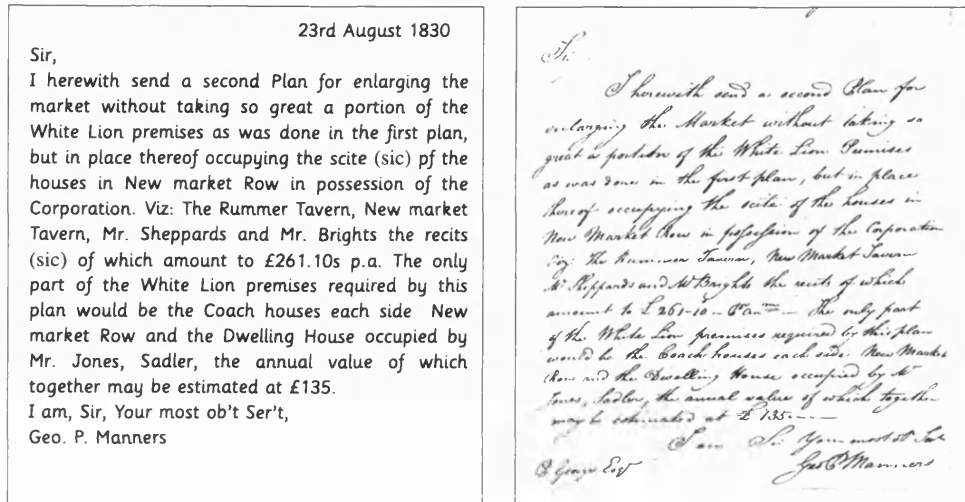 23rd August 1830
Sir,
I herewith send a second Plan for enlarging the
market without taking so great a portion of the
White Lion premises as was done in the first plan,
but in place thereof occupying the scite (sic) pf the
houses in New market Row in possession of the
Corporation. Viz: The Rummer Tavern, New market
Tavern, Mr. Sheppards and Mr. Brights the recits
(sic) of which amount to £261.10s p.a. The only
part of the White Lion premises required by this
plan would be the Coach houses each side New
market Row and the Dwelling House occupied by
Mr. Jones, Sadler, the annual value of which
together may be estimated at £135.
I am, Sir, Your most ob't Ser't,
Geo. P. Manners
Sir
I herewith send a second Plan for
enlarging the Market without taking so
great a portion of the White Lion Premises
as was done in the first plan, but in place
thereof occupying the scite of the houses in
New Market Row in possession of the Corporation
Viz: the Rummer Tavern, New Market Tavern
Mr Sheppards and Mr Brights the recits of which
amount to £261-10- P Ann - The only part
of the White Lion premises required by this plan
would be the Coach houses each side New Market
Row and the Dwelling House occupied by Mr
Jones, Sadler, the annual value of which together
may be estimated at £135
I am Sir Your most ob Serv
Geo P Manners
George Esqr